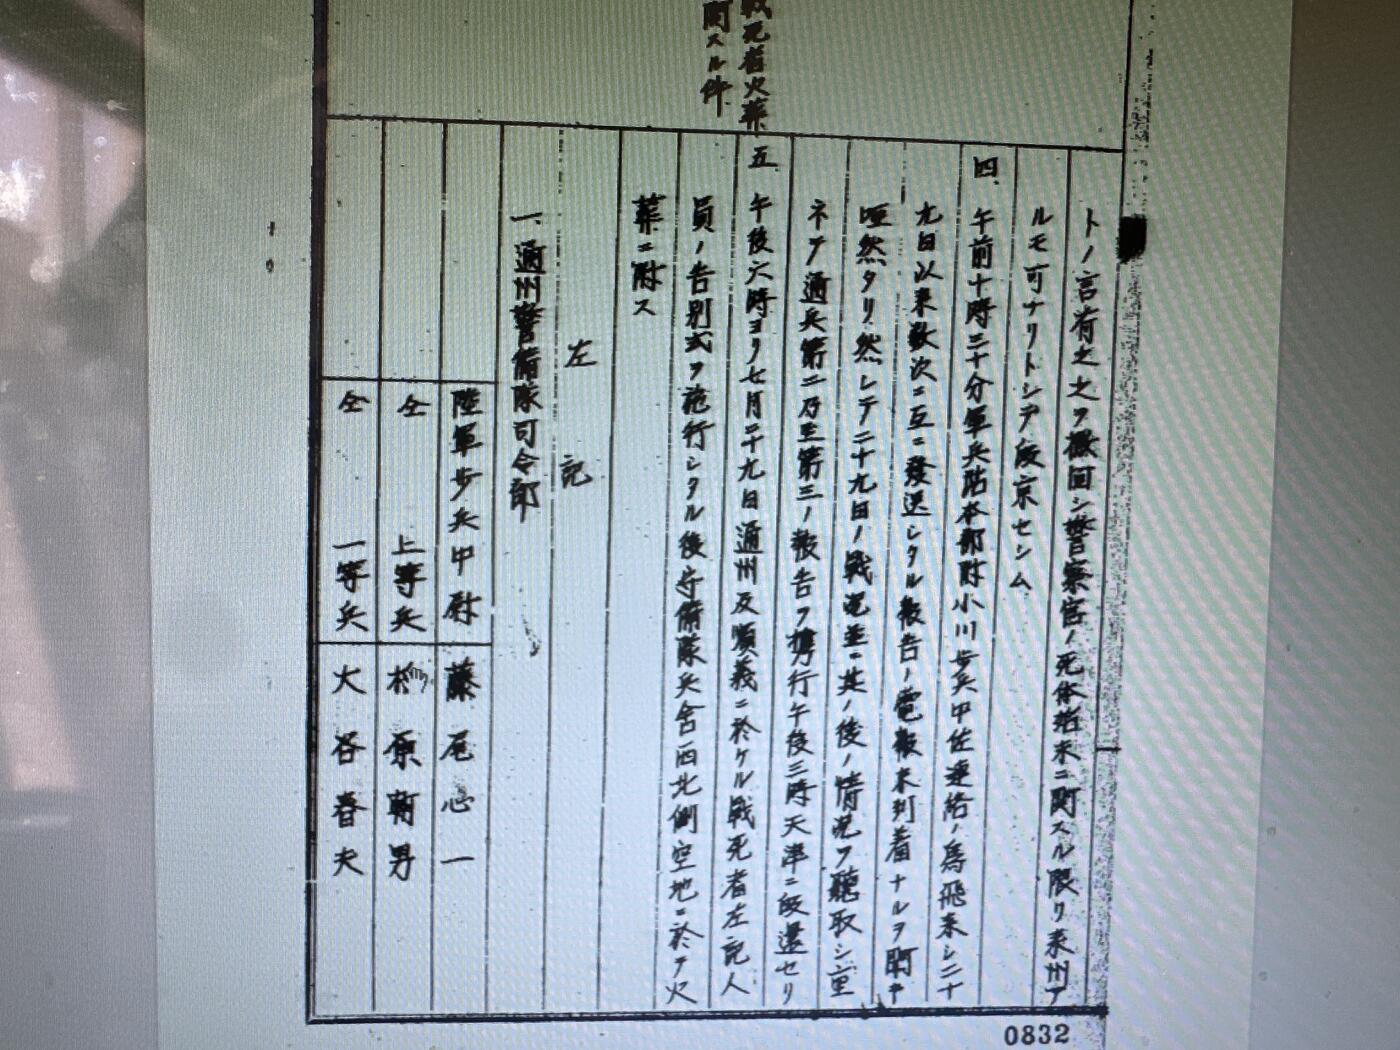 戦死者火葬
関スル件
トノ言有之之ヲ撤回シ警察官ノ死体始末ニ関スル限リ来州ア
ルモ可ナリトシテ皈京セシム
四、午前十時三十分軍兵站本部附小川歩兵中佐連絡ノ為飛来シ二十
九日以来数次ニ亙ニ發送シタル報告ノ電報未到着ナルヲ聞キ
唖然タリ然シテ二十九日ノ戦況並ニ其ノ後ノ情況ヲ聴取シ重
ネテ通兵第二乃至第三ノ報告ヲ携行午後三時天津ニ皈還セリ
五、午後六時ヨリ七月二十九日通州及順義ニ於ケル戦死者左記人
員ノ告別式ヲ施行シタル後守備隊兵舎西北側空地ニ於テ火
葬ニ附ス
左記
一、通州警備隊司令部
陸軍歩兵中尉 藤尾心一
仝 上等兵 原 男
仝 一等兵 大谷春夫
0832